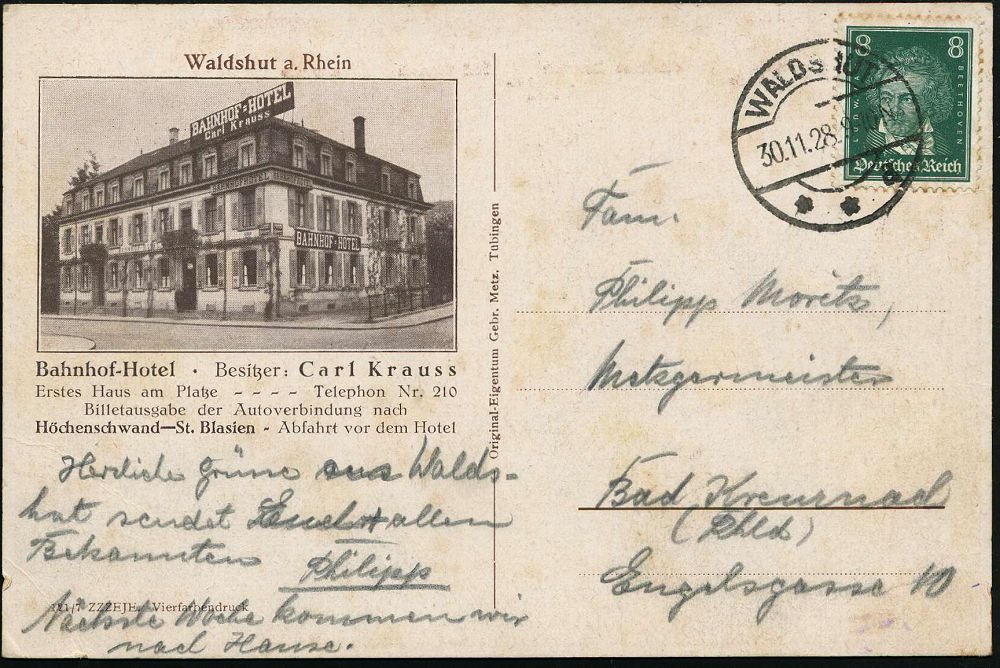 Waldshut a. Rhein
BAHNHOF-HOTEL
Carl Krauss
BAHNHOF-HOTEL
BAHNHOF-HOTEL
Bahnhof-Hotel · Besitzer: Carl Krauss
Erstes Haus am Platze - - - - Telephon Nr. 210
Billetausgabe der Autoverbindung nach
Höchenschwand—St. Blasien - Abfahrt vor dem Hotel
Herzliche Grüsse aus Walds-
hut sendet Euch + allen
Bekannten
Philipp
121/7 ZZZEJE. Vierfarbendruck
Nächste Woche kommen wir
nach Hause.
Original-Eigentum Gebr. Metz, Tübingen
WALDSHUT
30.11.28.
8 8
LUDW. BEETHOVEN
Deutsches Reich
Fam.
Philipp Moritz,
Metzgermeister
Bad Kreuznach
(Rhld)
Engelsgasse 10